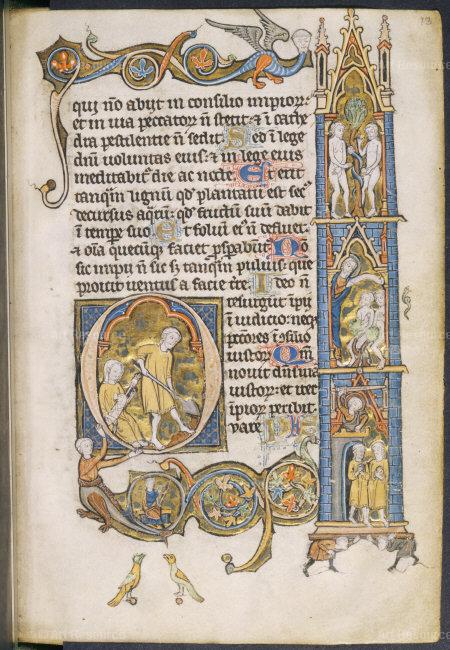 qui no abiit in consilio impior:
et in via peccator n stetit: & i cathe
dra pestilentie n sedit. Sed i lege
dni voluntas eius: & in lege eius
meditabit die ac nocte. Et erit
tanqm lignu qd plantatu est sec
decursus aqru: qd fructu suu dabit
i tempe suo. Et foliu ei n defluet:
& oia quecuq faciet pspabut. No
sic impii n sic s tanqm puluis: que
proicit ventus a facie tre. Ideo n
resurgut ipii
i iudicio: neq
pctores i silio
iustor. Qm
novit dns via
iustor: et iter
ipior peribit